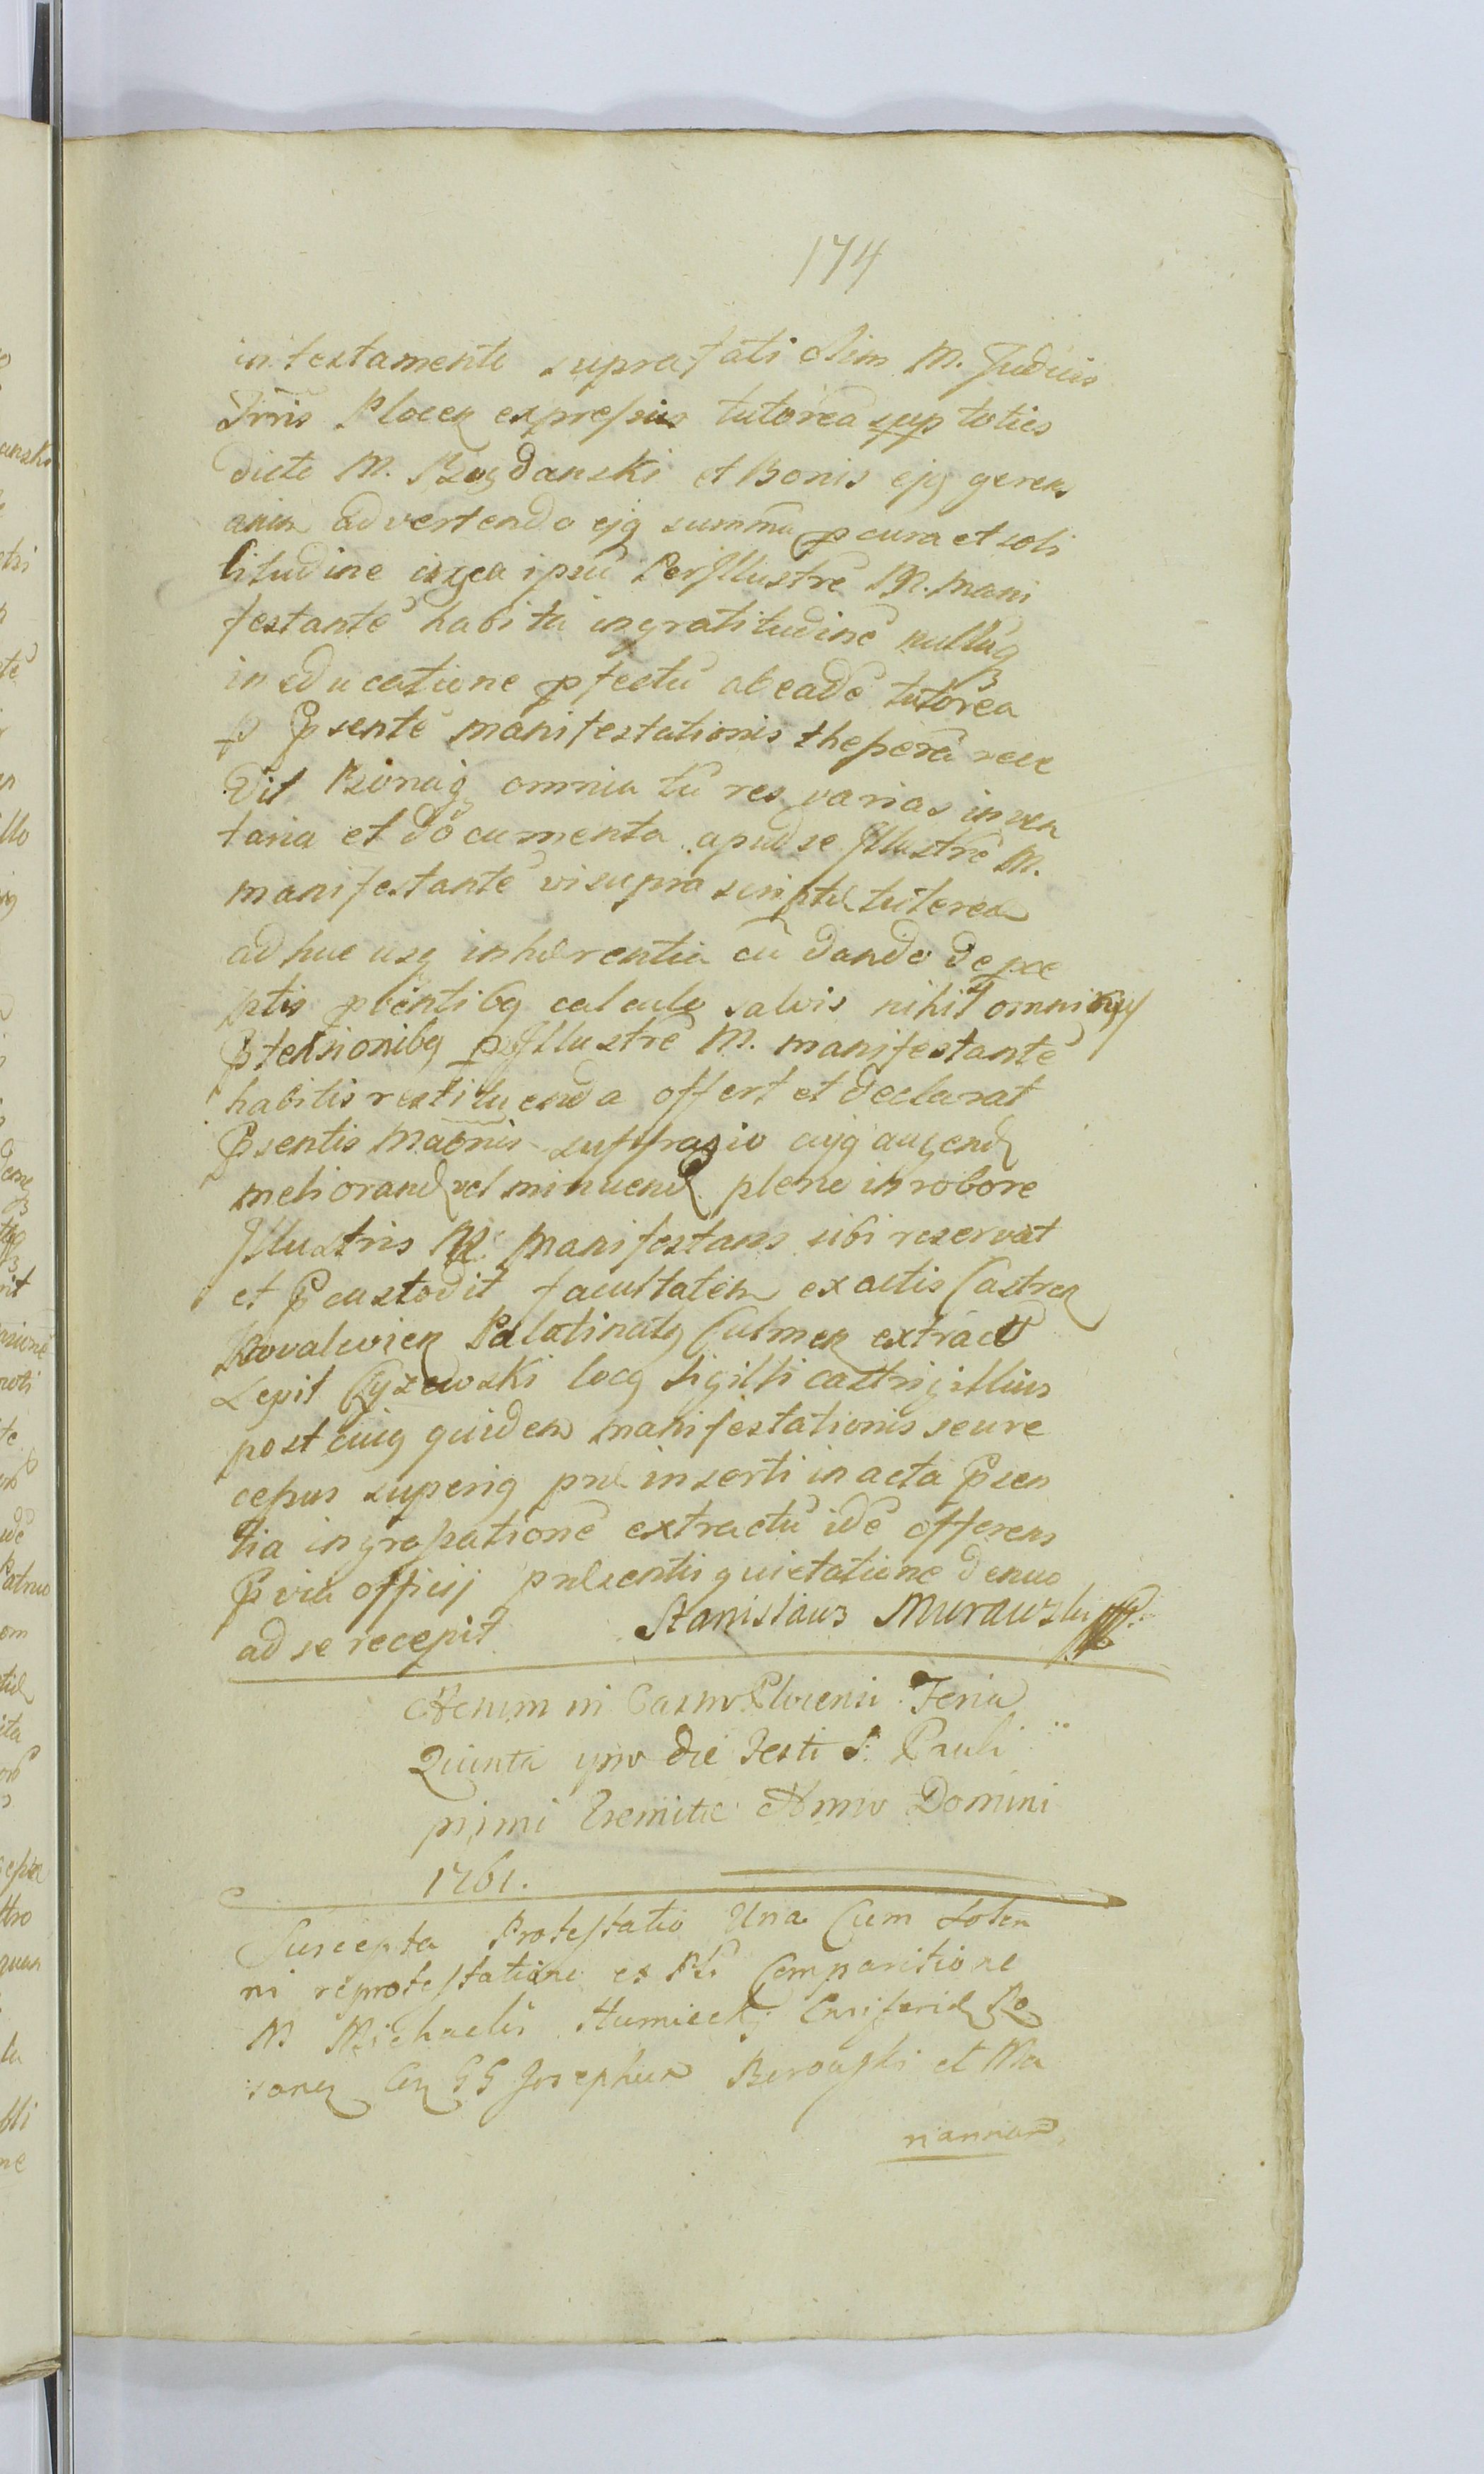 174
in testamento suprafati olim M. Judicis
Trris Plocen expressus tutorea sup toties
dicto M. Bogdanski et Bonis ejg gerens
anim advertendo ejg summa p cura et soli
litudine circa ipsu Perillustre M. mani
festante habita ingratitudine nullug
in educatione pfectu ab eade tutorea
p Psente manifestationis rece
dit Bonag omnia tu res varias inven
taria et documenta apud se Illustre M.
manifestante vi supra scripta tutorea
ad huc usq inhærentia cu dando de
ptis calculo salvis nihil omnibg
Ptensionibg p Illustre M. manifestante
habitis restituenda offert et declarat
Psentis suffragio cujg augend
meliorand vel minuend plene in robore
Illustris M. Manifestans sibi reservat
et Pcustodit facultatem ex actis Castren
Kovalevien Palatinatg Culmen extract
Legit Cyzewski locg sigilli castrj illius
post cuig quidem manifestationis seu re
cessus superig inserti in acta Psen
tia ingrossatione extractu ide offerens
Pvia officij præsentis quietatione denuo
ad se recepit Stanislaus Murawski
Actum in Castro Plocensi Feria
Quinta ipso die Festi S. Pauli
primi Eremitæ Anno Domini
1761.
Suscepta Protestatio Una Cum solen
ni reprotestatione ex Comparitione
M Michaelis Humiecki Ensiferid Ro
sanen GG Josephum et Ma
riannam